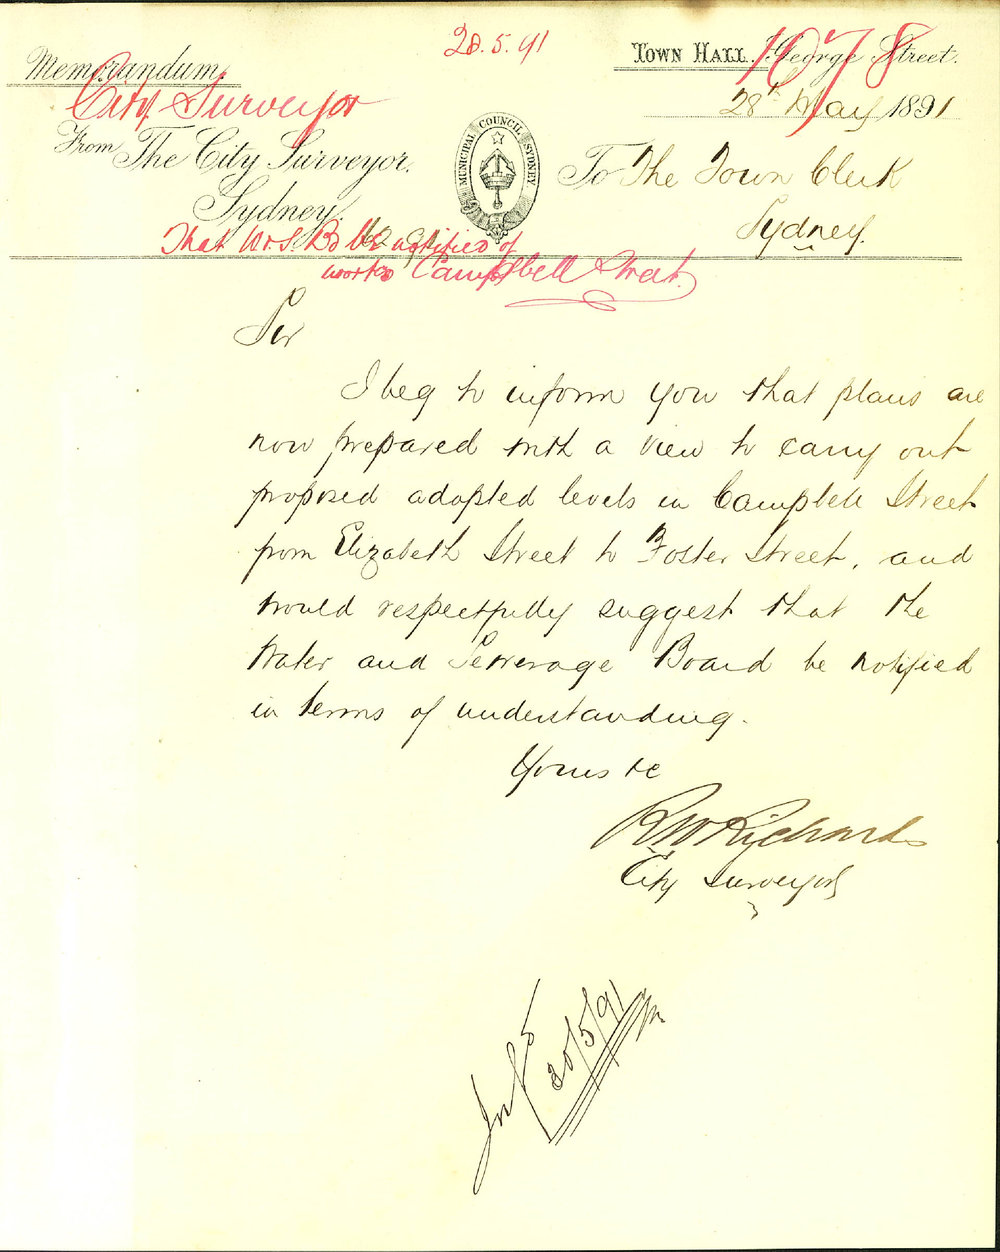 28.5.91
1078
Memorandum
TOWN HALL. George Street.
City Surveyor
28th May 1891
From The City Surveyor,
Sydney
MUNICIPAL COUNCIL SYDNEY
To The Town Clerk
Sydney.
That W & S Bd be notified of
works Campbell Street.
Sir
I beg to inform you that plans are
now prepared with a view to carry out
proposed adopted levels in Campbell Street
from Elizabeth Street to Foster Street, and
would respectfully suggest that the
Water and Sewerage Board be notified
in terms of understanding.
Yours &c
R W Richards
City Surveyor
/5/91